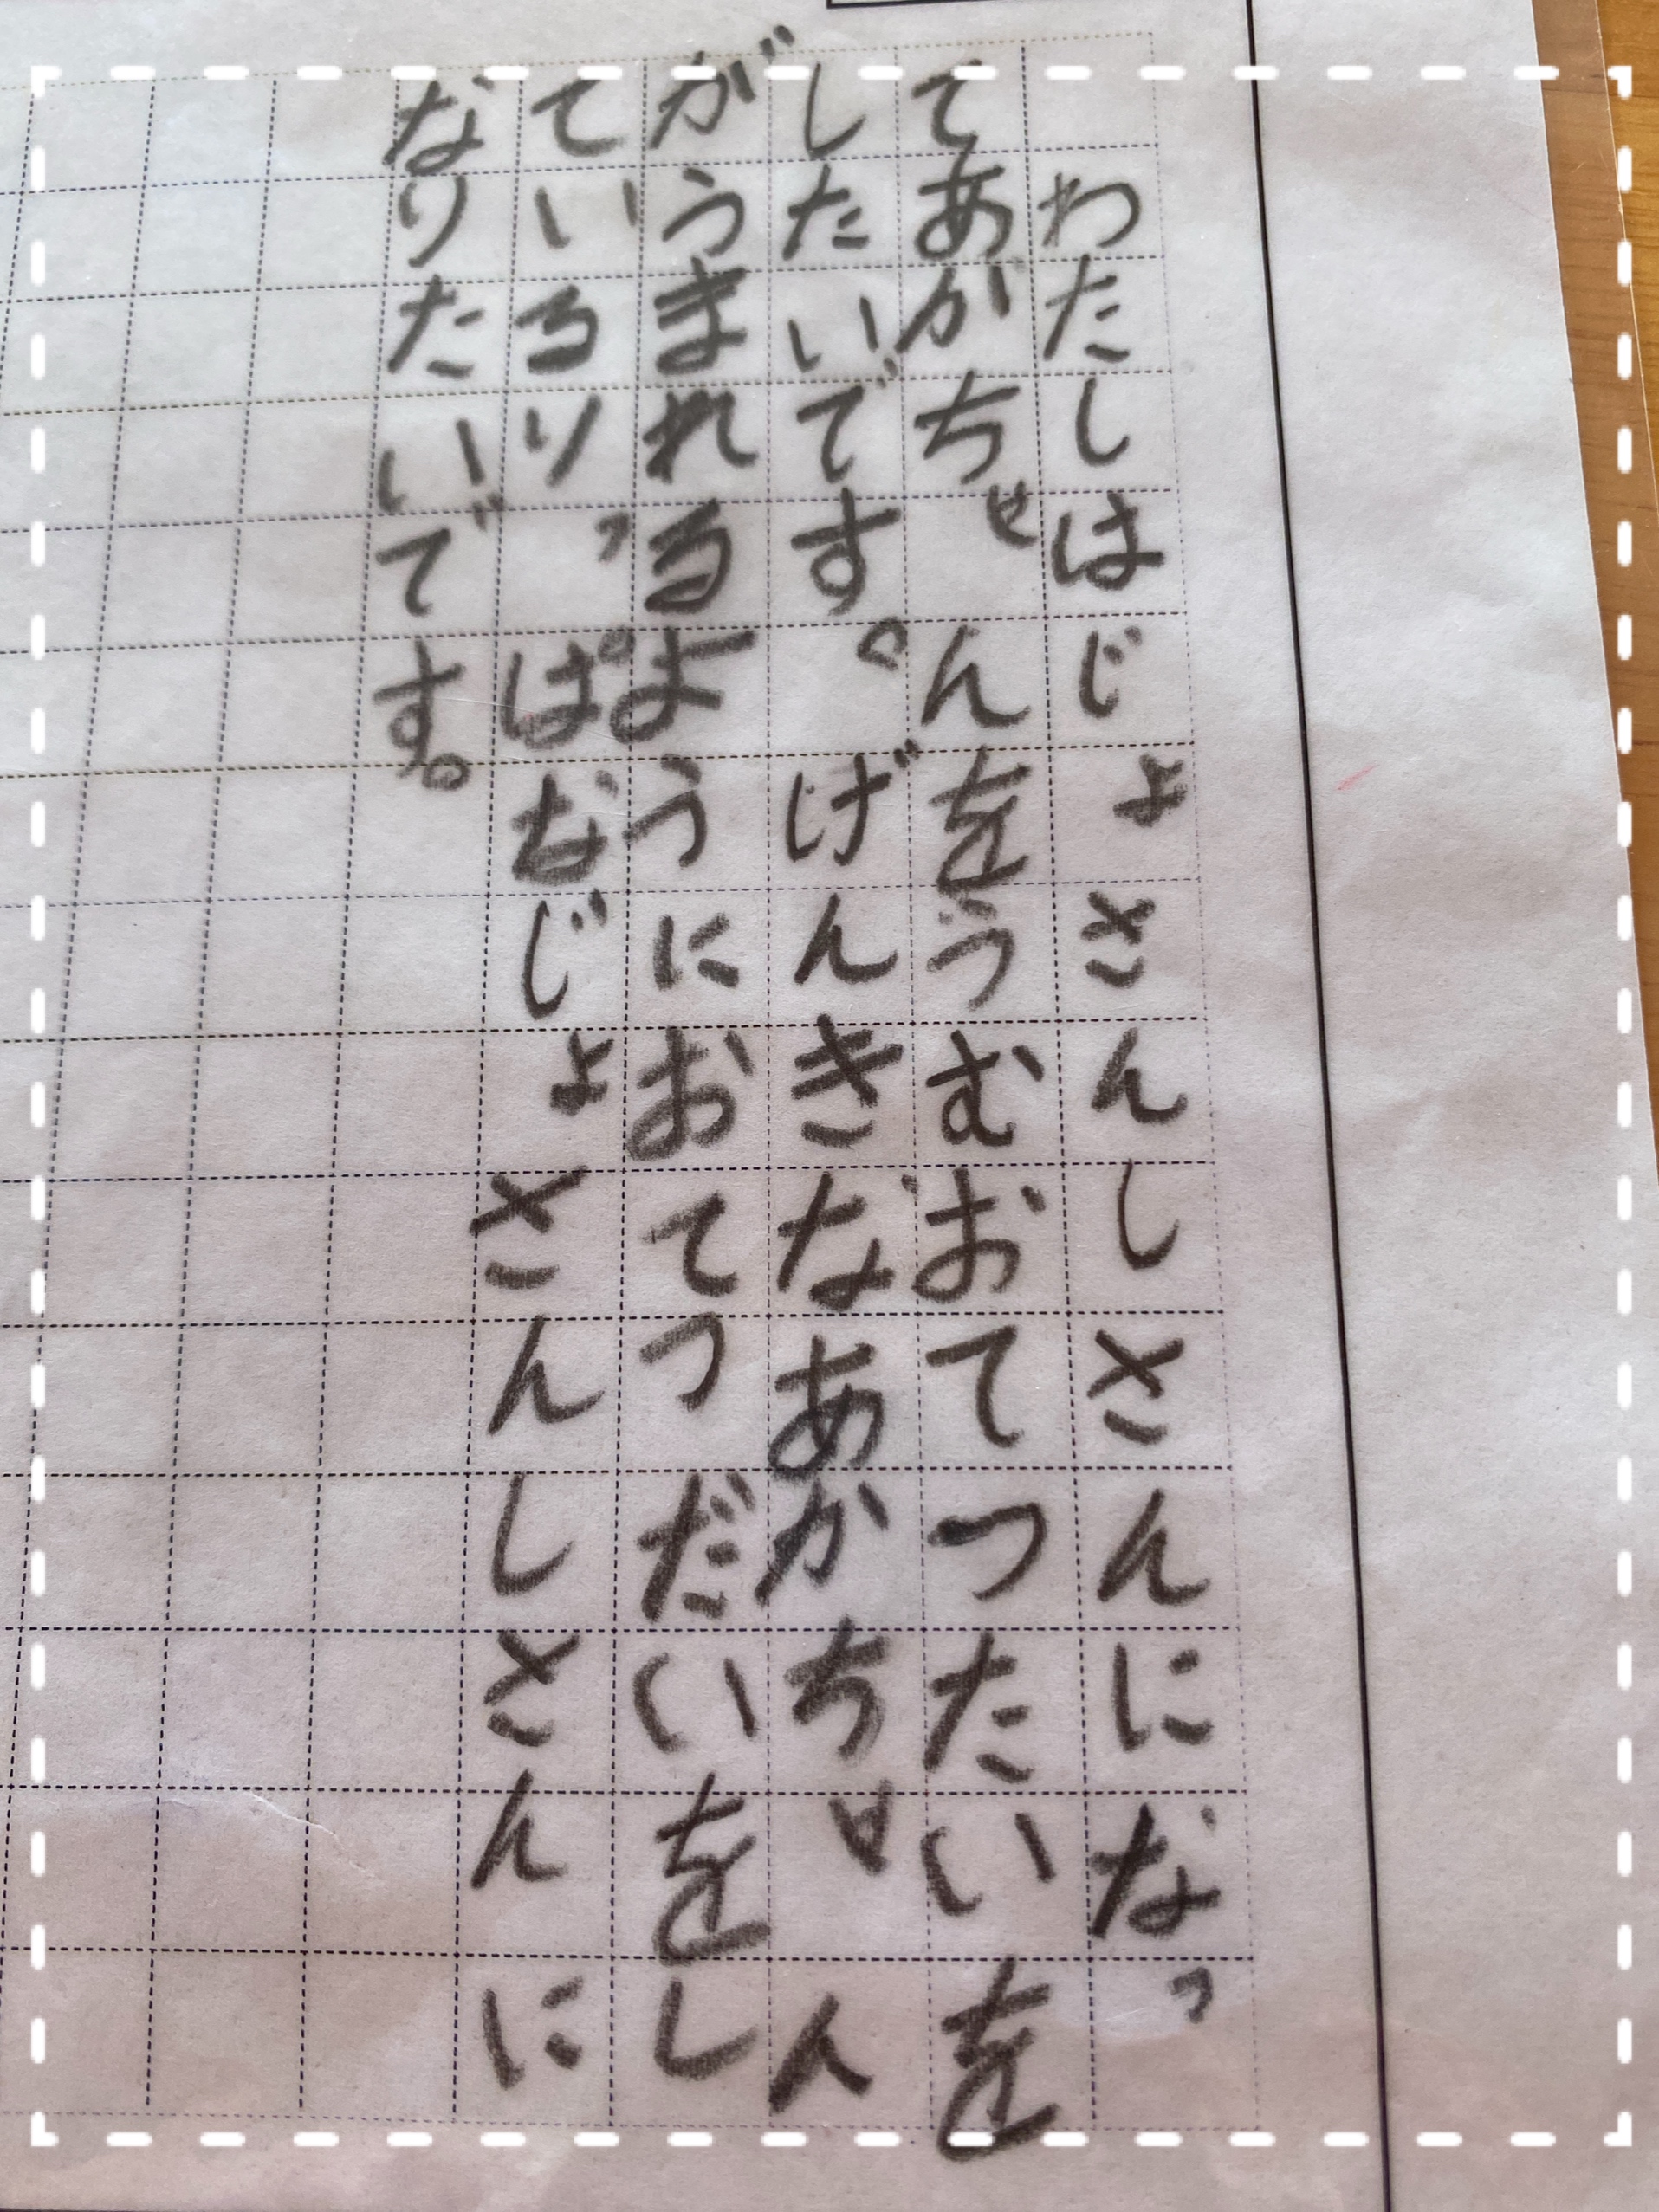 わたしはじょさんしさんになっ
てあかちゃんをうむおてつたいを
したいです。げんきなあかちゃん
がうまれるようにおてつだいをし
ているりっぱなじょさんしさんに
なりたいです。